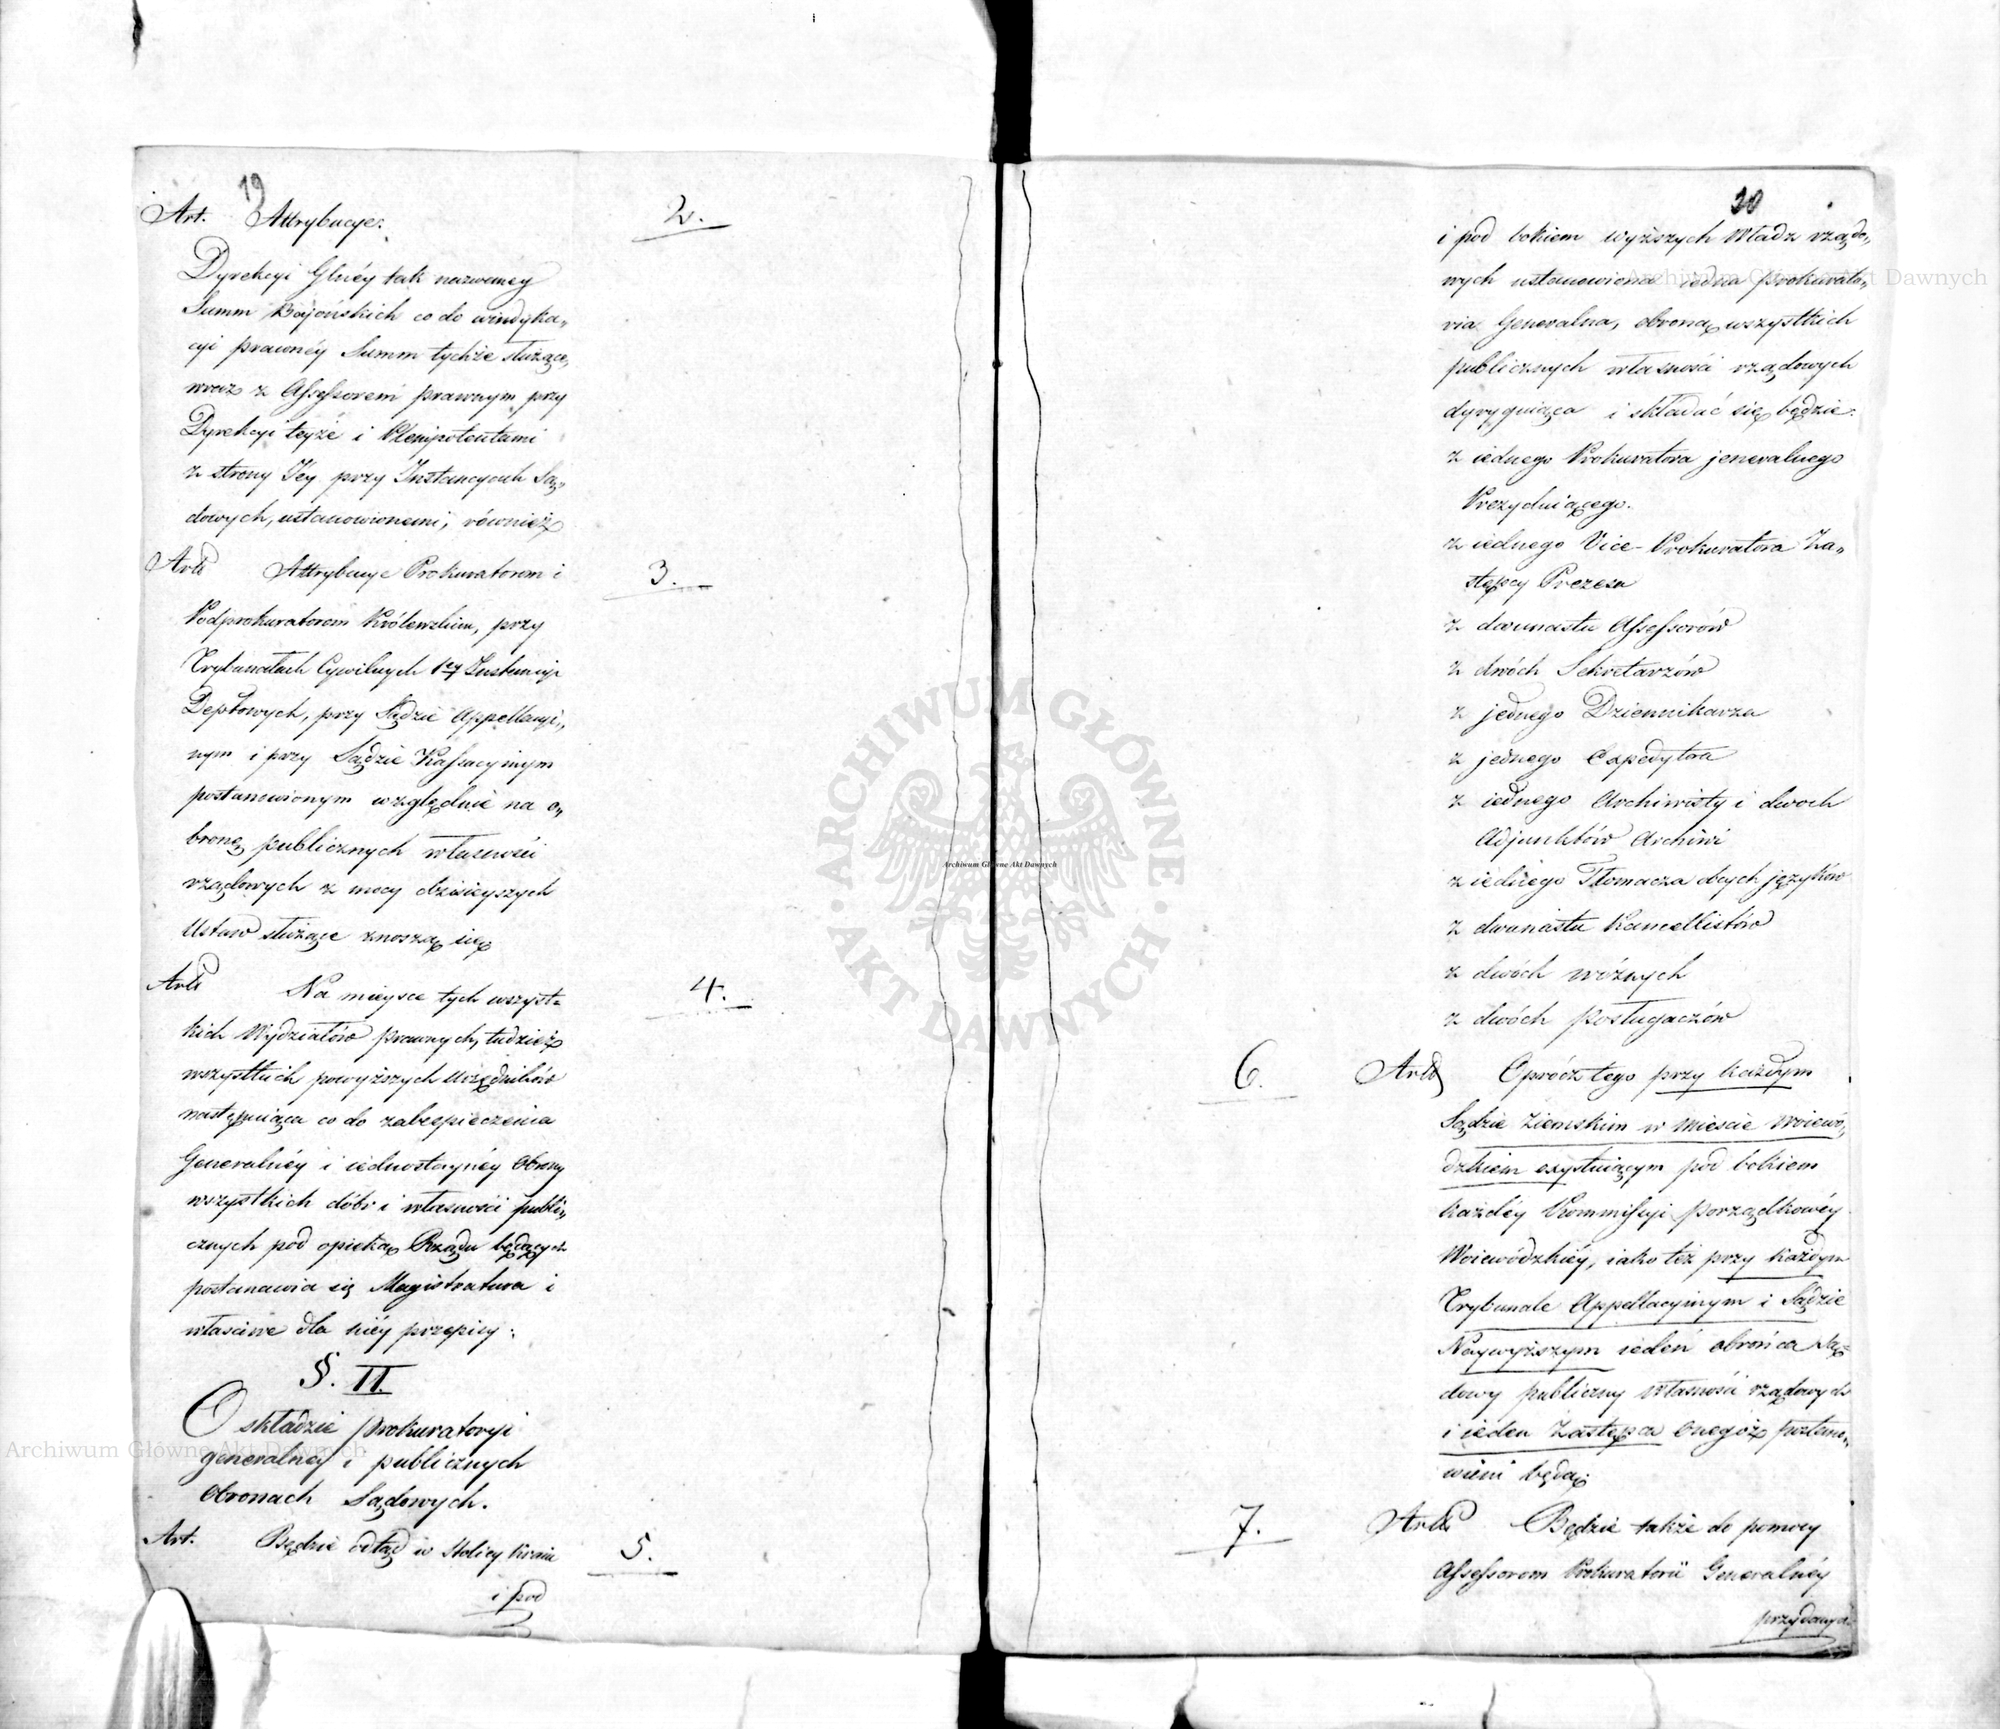 19
Art. Attrybucye. 2.
Dyrekcyi Głnéy tak nazwaney
Summ Bajońskich co do windyka„
cyi prawnéy Summ tychże służące,
wraz z Assessorem prawnym przy
Dyrekcyi teyże i Plenipotentami
z strony Jéy przy Instancyach Są„
dowych, ustanowionemi; również
Art. Attrybucye Prokuratorom i 3.
Podprokuratorom Królewskim, przy
Trybunałach Cywilnych 1ey Instancyi
Depłowych, przy Sądzie Appellacyi„
nym i przy Sądzie Kassacyinym
postanowionym względnie na o„
bronę publicznych własności
rządowych z mocy dzisieyszych
Ustaw służące znoszą się
Art. Na mieysce tych wszyst= 4.
kich Wydziałów prawnych, tudzież
wszystkich powyższych Urzędników
następuiąca co do zabezpieczenia
Generalnéy i iednostaynéy Obrony
wszystkich dóbr i własności publi„
cznych pod opieką Rządu będących
postanawia się Magistratura i
właściwe dla niéy przepisy:
§. II.
O składzie prokuratoryi
generalnéy i publicznych
Obronach Sądowych.
Art. Będzie odtąd w Stolicy Kraiu 5.
i pod
20
i pod bokiem wyższych Władz rządo„
wych ustanowiona iedna prokurato„
ria Generalna, obroną wszystkich
publicznych własności rządowych
dyryguiąca i składać się będzie:
z iednego Prokuratora jeneralnego
Prezyduiącego.
z iednego Vice-Prokuratora Za„
stępcy Prezesa
z dwunastu Assessorów
z dwóch Sekretarzów
z jednego Dziennikarza
z jednego Expedytora
z iednego Archiwisty i dwoch
Adjunktów Archiwi
z iednego Tłomacza obcych języków
z dwunastu Kancellistów
z dwóch woźnych
z dwóch posługaczów
6. Art. Oprócz tego przy każdym
Sądzie Ziemskim w mieście Woiewó„
dzkiem exystuiącym pod bokiem
każdéy Kommissyi porządkowéy
Woiewódzkiéy, iako też przy każdym
Trybunale Appellacyinym i Sądzie
Naywyższym ieden obrońca Są=
dowy publiczny własności rządowych
i ieden Zastępca Onegóż postano„
wieni będą.
7. Art. Będzie także do pomocy
Assessorom Prokuratorii Generalnéy
przydanych
ARCHIWUM GŁÓWNE · AKT DAWNYCH ·
Archiwum Główne Akt Dawnych
Archiwum Główne Akt Dawnych
Archiwum Główne Akt Dawnych